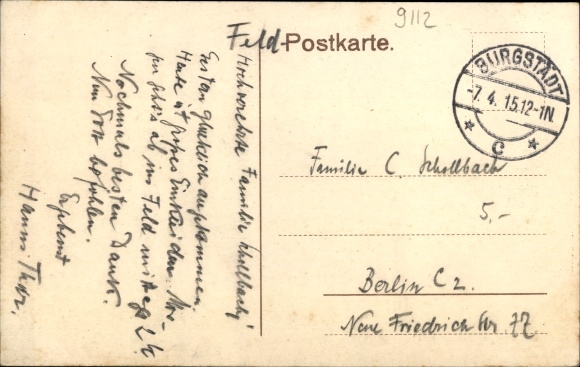 9112
Feld-Postkarte.
BURGSTÄDT
-7.4.15.12-1N.
* C *
Familie C. Schollbach
5.-
Berlin C 2.
Neue Friedrich Str 77
Hochverehrte Familie Schollbach!
Gestern glücklich angekommen
Heute ist großes Einkleiden.
ab ins Feld
Nochmals besten Dank.
Nun Gott befohlen.
Ergebenst
Hanns